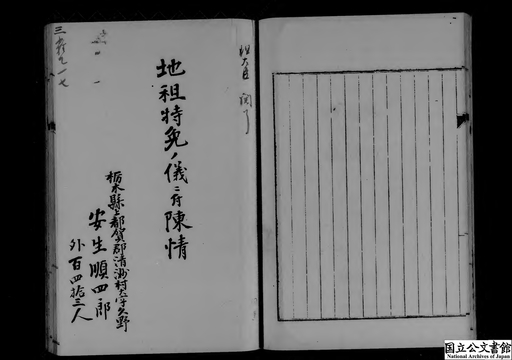 地租特免ノ儀ニ付陳情
栃木縣上都賀郡清洲村大字久野
安生順四郎
外百四拾三人
国立公文書館
National Archives of Japan